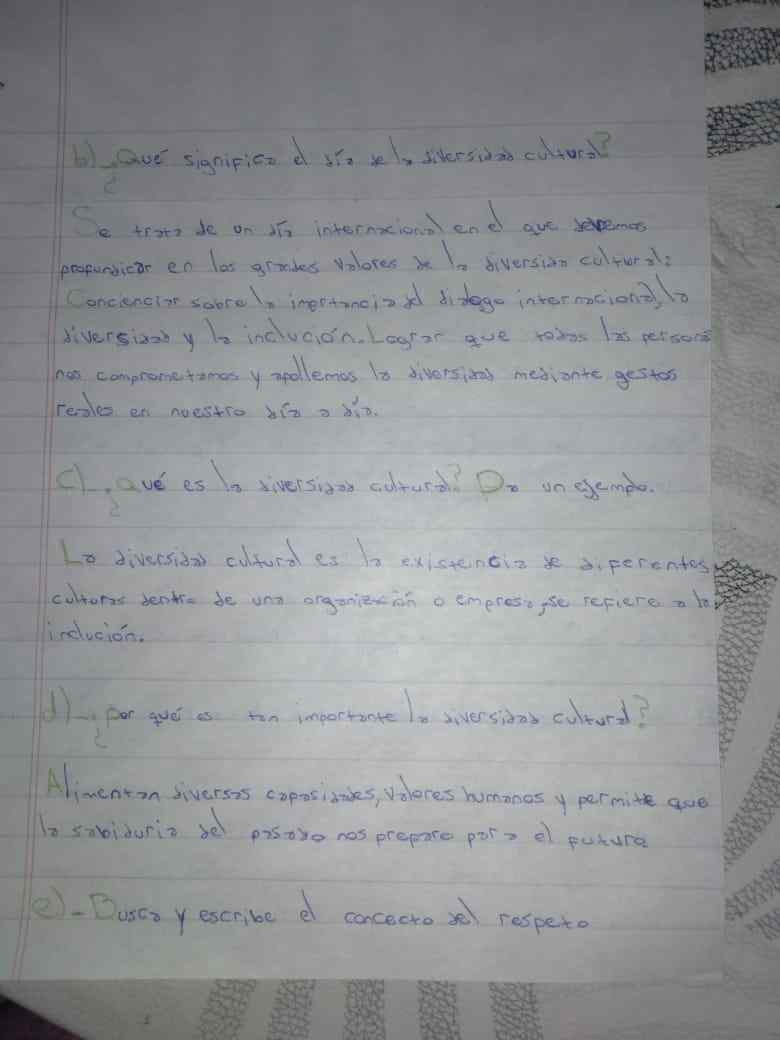 b)-¿Qué significa el día de la diversidad cultural?
Se trata de un día internacional en el que debemos
profundicar en los grandes valores de la diversida cultural:
Concienciar sobre la importancia del dialogo internacional, la
diversidad y la inclución. Lograr que todas las persona
nos comprometamos y apollemos la diversidad mediante gestos
reales en nuestro día a día.
c)-¿Qué es la diversidad cultural? Da un ejempo.
La diversidad cultural es la existencia de diferentes
culturas dentro de una organización o empresa, se refiere a la
inclución.
d)-¿por qué es tan importante la diversidad cultural?
Alimentan diversas capasidades, valores humanos y permite que
la sabiduria del pasado nos prepare para el futura
e)-Busca y escribe el concecto del respeto